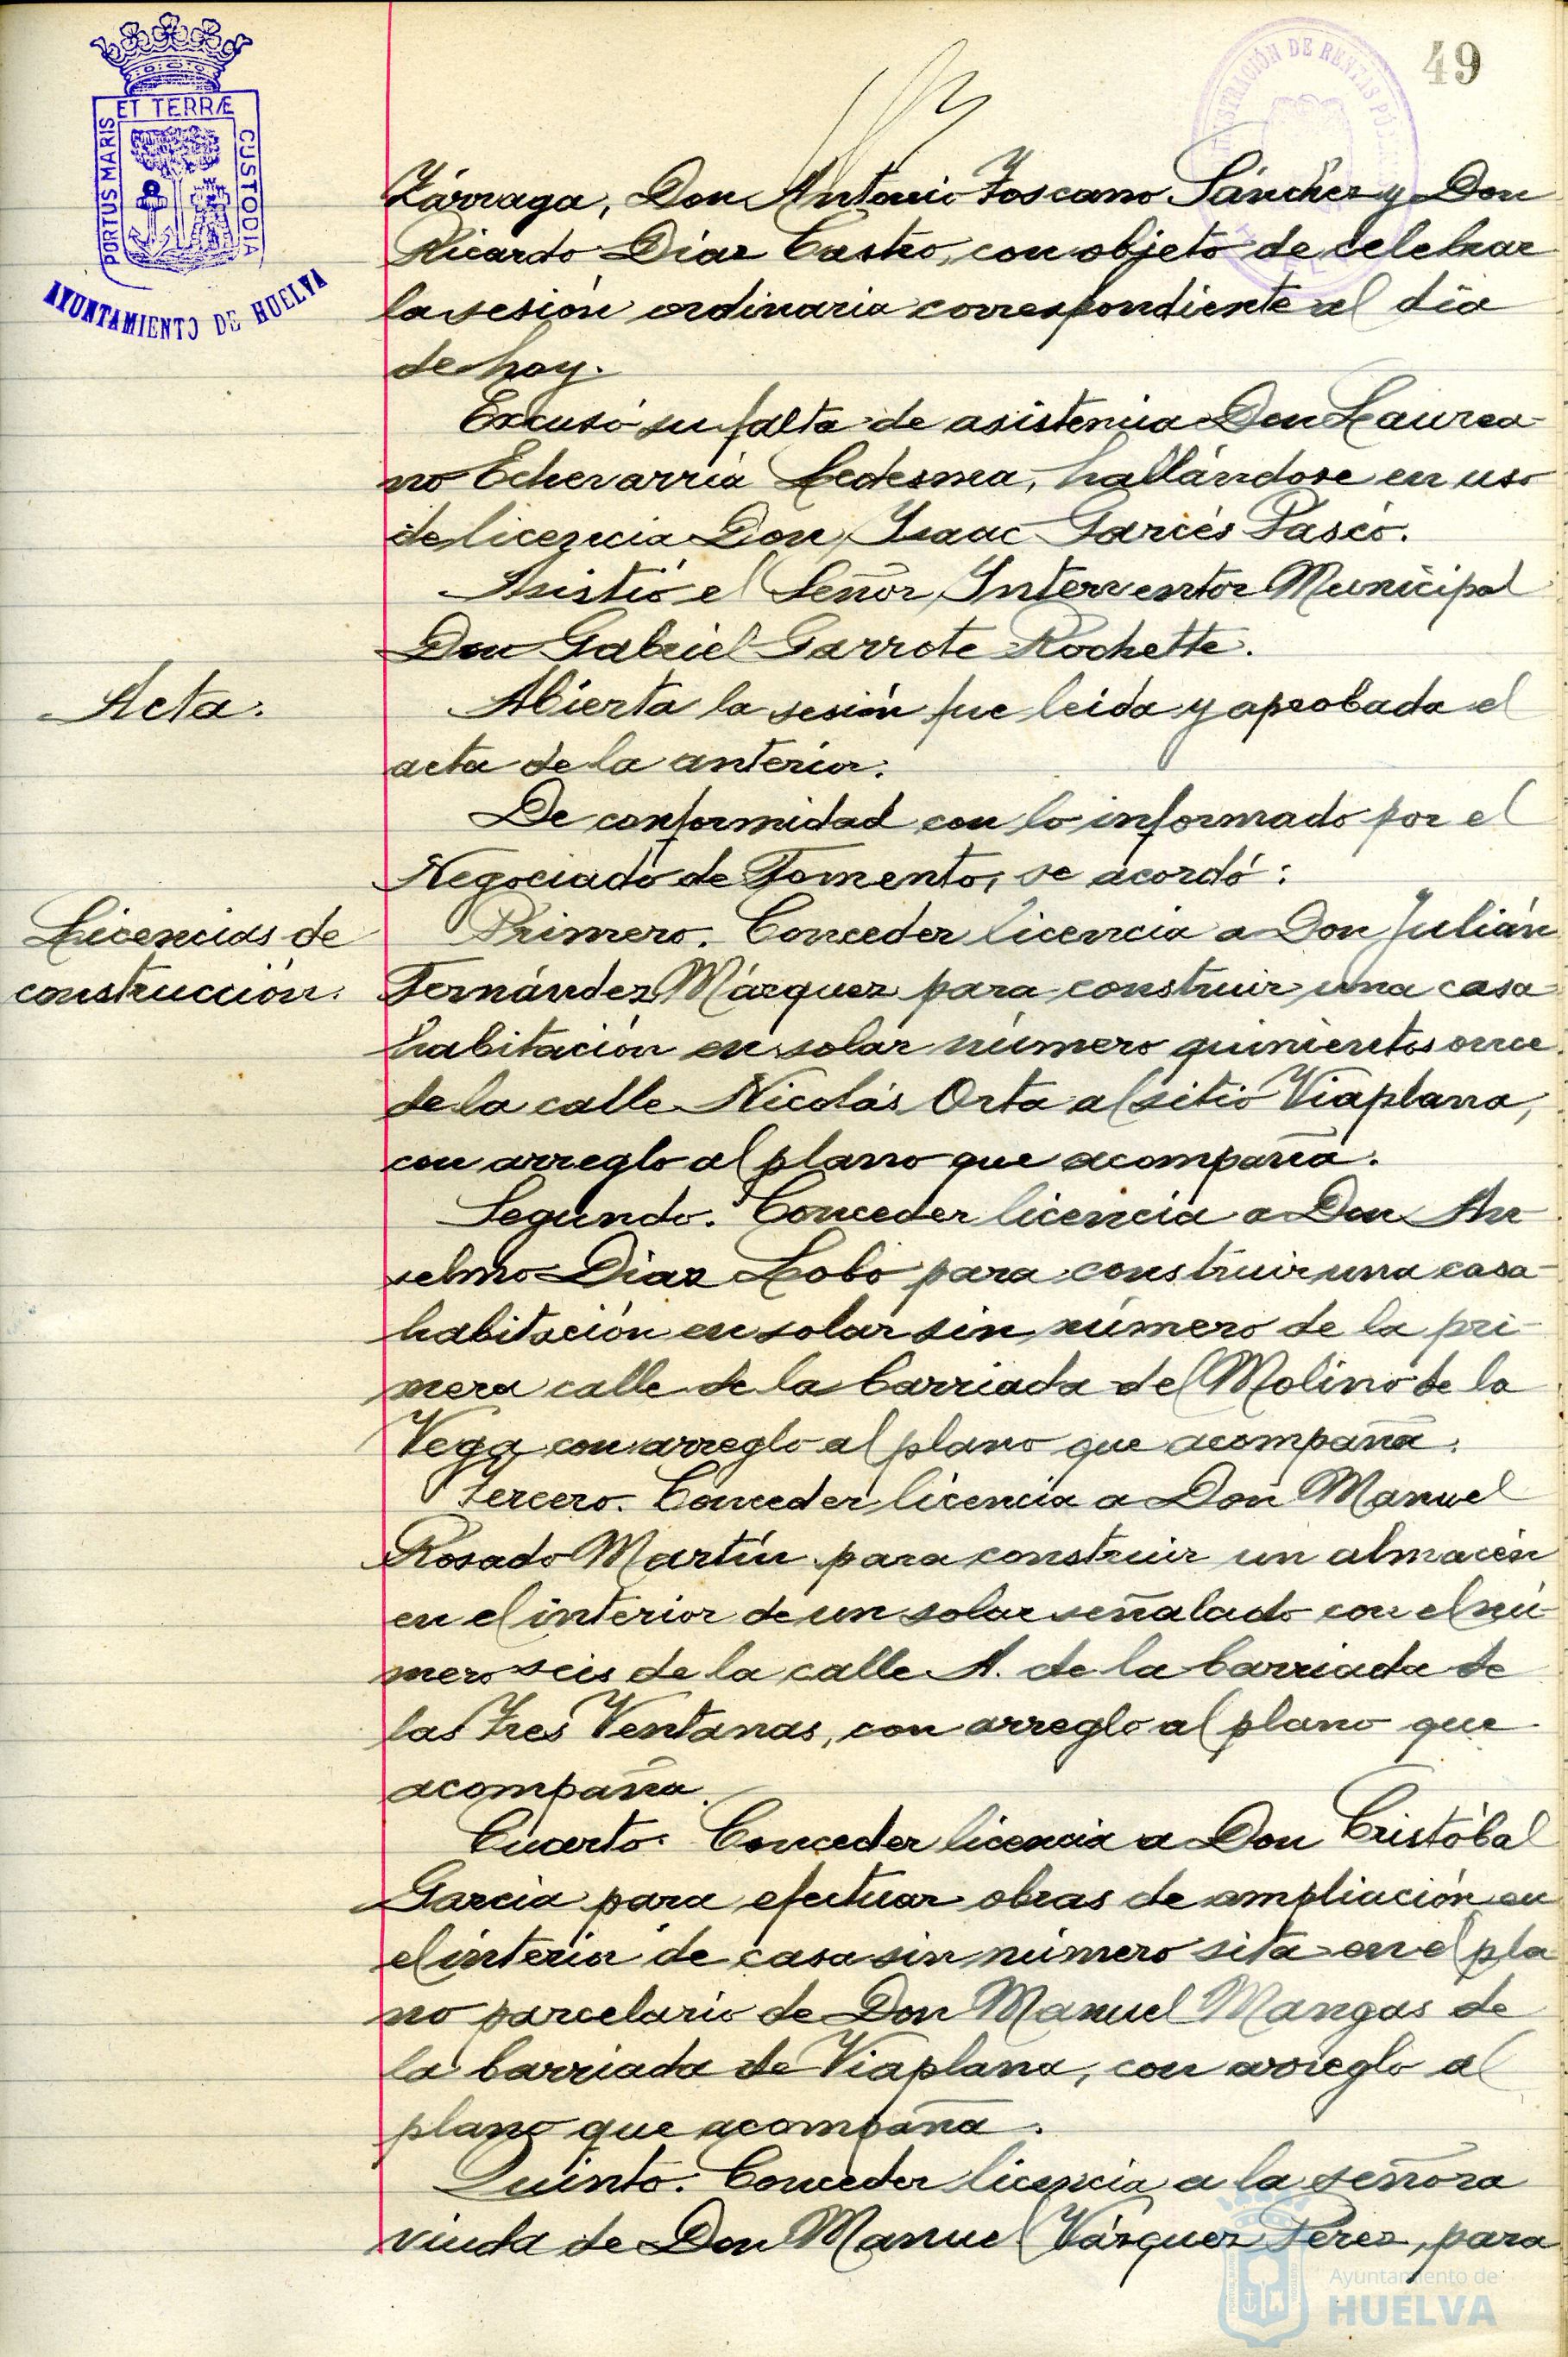 49
ET TERRÆ
PORTUS MARIS
CUSTODIA
AYUNTAMIENTO DE HUELVA
Zárraga, Don Antonio Toscano Sánchez y Don
Ricardo Díaz Castro, con objeto de celebrar
la sesión ordinaria correspondiente al día
de hoy.
Excusó su falta de asistencia Don Laurea-
no Echevarría Ledesma, hallándose en uso
de licencia Don Isaac Garcés Paseo.
Asistió el Señor Interventor Municipal
Don Gabriel Garrote Rochette.
Acta.
Abierta la sesión fue leida y aprobada el
acta de la anterior.
De conformidad con lo informado por el
Negociado de Fomento, se acordó:
Licencias de
construcción.
Primero. Conceder licencia a Don Julián
Fernández Márquez para construir una casa
habitación en solar número quinientos once
de la calle Nicolás Orta al sitio Viaplana,
con arreglo al plano que acompaña.
Segundo. Conceder licencia a Don An
selmo Diaz Lobo para construir una casa
habitación en solar sin número de la pri-
mera calle de la barriada del Molino de la
Vega con arreglo al plano que acompaña.
Tercero. Conceder licencia a Don Manuel
Rosado Martín para construir un almacén
en el interior de un solar señalado con el nú
mero seis de la calle A. de la barriada de
las Tres Ventanas, con arreglo al plano que
acompaña.
Cuarto. Conceder licencia a Don Cristóbal
García para efectuar obras de ampliación en
el interior de casa sin número sita en el pla
no parcelario de Don Manuel Mangas de
la barriada de Viaplana, con arreglo al
plano que acompaña.
Quinto. Conceder licencia a la señora
viuda de Don Manuel Vázquez Pérez, para
Ayuntamiento de
HUELVA